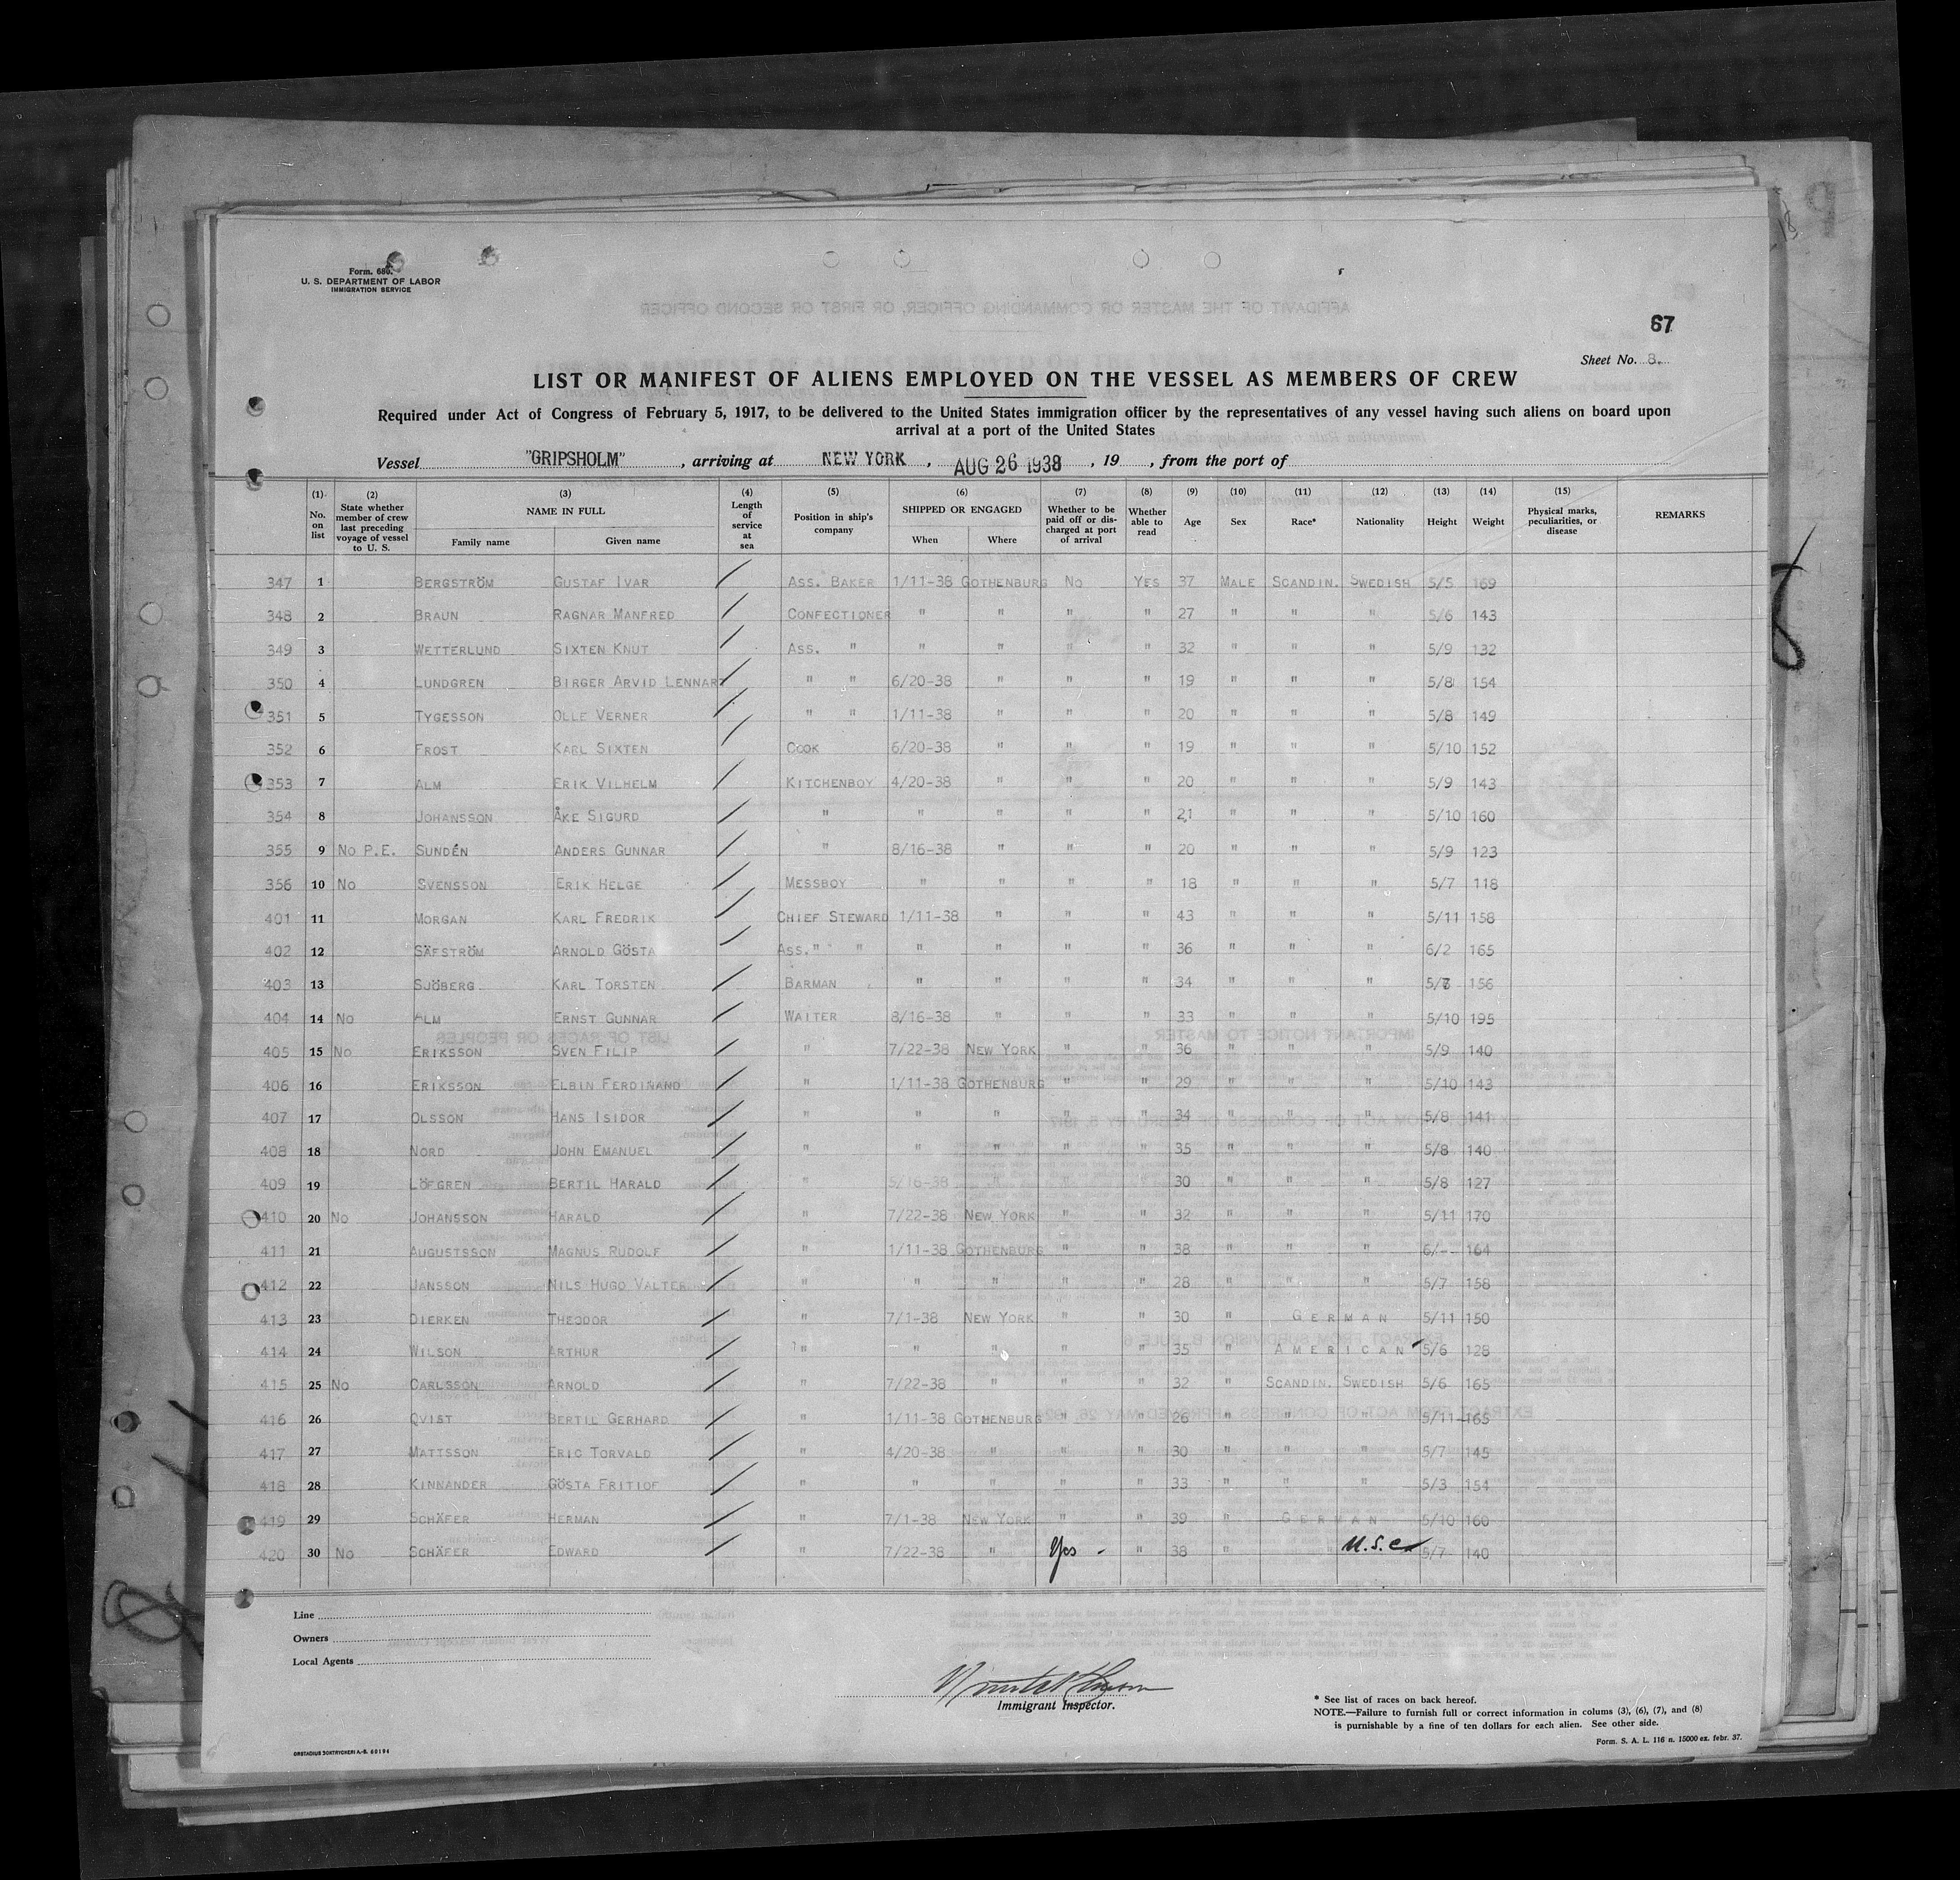 Form. 680.
U. S. DEPARTMENT OF LABOR
IMMIGRATION SERVICE
67
Sheet No. 8.
LIST OR MANIFEST OF ALIENS EMPLOYED ON THE VESSEL AS MEMBERS OF CREW
Required under Act of Congress of February 5, 1917, to be delivered to the United States immigration officer by the representatives of any vessel having such aliens on board upon
arrival at a port of the United States
Vessel "GRIPSHOLM", arriving at NEW YORK, AUG 26 1938, 19 , from the port of
(1) No. on list (2) State whether member of crew last preceding voyage of vessel to U. S. (3) NAME IN FULL Family name Given name (4) Length of service at sea (5) Position in ship's company (6) SHIPPED OR ENGAGED When Where (7) Whether to be paid off or discharged at port of arrival (8) Whether able to read (9) Age (10) Sex (11) Race* (12) Nationality (13) Height (14) Weight (15) Physical marks, peculiarities, or disease REMARKS
347 1 BERGSTRÖM GUSTAF IVAR / ASS. BAKER 1/11-38 GOTHENBURG NO YES 37 MALE SCANDIN. SWEDISH 5/5 169
348 2 BRAUN RAGNAR MANFRED / CONFECTIONER " " " " 27 " " " 5/6 143
349 3 WETTERLUND SIXTEN KNUT / ASS. " " " " " 32 " " " 5/9 132
350 4 LUNDGREN BIRGER ARVID LENNART / " " 6/20-38 " " " 19 " " " 5/8 154
351 5 TYGESSON OLLE VERNER / " " 1/11-38 " " " 20 " " " 5/8 149
352 6 FROST KARL SIXTEN / COOK 6/20-38 " " " 19 " " " 5/10 152
353 7 ALM ERIK VILHELM / KITCHENBOY 4/20-38 " " " 20 " " " 5/9 143
354 8 JOHANSSON ÅKE SIGURD / " " " " " 21 " " " 5/10 160
355 9 NO P.E. SUNDÉN ANDERS GUNNAR / " 8/16-38 " " " 20 " " " 5/9 123
356 10 NO SVENSSON ERIK HELGE / MESSBOY " " " " 18 " " " 5/7 118
401 11 MORGAN KARL FREDRIK / CHIEF STEWARD 1/11-38 " " " 43 " " " 5/11 158
402 12 SÄFSTRÖM ARNOLD GÖSTA / ASS. " " " " " " 36 " " " 6/2 165
403 13 SJÖBERG KARL TORSTEN / BARMAN " " " " 34 " " " 156
404 14 NO ALM ERNST GUNNAR / WAITER 8/16-38 " " " 33 " " " 5/10 195
405 15 NO ERIKSSON SVEN FILIP / " 7/22-38 NEW YORK " " 36 " " " 5/9 140
406 16 ERIKSSON ELBIN FERDINAND / " 1/11-38 GOTHENBURG " " 29 " " " 5/10 143
407 17 OLSSON HANS ISIDOR / " " " " " 34 " " " 5/8 141
408 18 NORD JOHN EMANUEL / " " " " " 35 " " " 5/8 140
409 19 LÖFGREN BERTIL HARALD / " 5/16-38 " " " 30 " " " 5/8 127
410 20 NO JOHANSSON HARALD / " 7/22-38 NEW YORK " " 32 " " " 5/11 170
411 21 AUGUSTSSON MAGNUS RUDOLF / " 1/11-38 GOTHENBURG " " 38 " " " 6/- 164
412 22 JANSSON NILS HUGO VALTER / " " " " " 28 " " " 5/7 158
413 23 DIERKEN THEODOR / " 7/1-38 NEW YORK " " 30 " GERMAN 5/11 150
414 24 WILSON ARTHUR / " " " " " 35 " AMERICAN 5/6 128
415 25 NO CARLSSON ARNOLD / " 7/22-38 " " " 32 " SCANDIN. SWEDISH 5/6 165
416 26 QVIST BERTIL GERHARD / " 1/11-38 GOTHENBURG " " 26 " " " 5/11 165
417 27 MATTSSON ERIC TORVALD / " 4/20-38 " " " 30 " " " 5/7 145
418 28 KINNANDER GÖSTA FRITIOF / " " " " " 33 " " " 5/3 154
419 29 SCHÄFER HERMAN / " 7/1-38 NEW YORK " " 39 " GERMAN 5/10 160
420 30 NO SCHÄFER EDWARD / " 7/22-38 " Yes - " 38 " " U.S.C. 5/7 140
Line
Owners
Local Agents
Immigrant Inspector.
* See list of races on back hereof.
NOTE.—Failure to furnish full or correct information in colums (3), (6), (7), and (8)
is punishable by a fine of ten dollars for each alien. See other side.
Form. S. A. L. 116 n. 15000 ex. febr. 37.